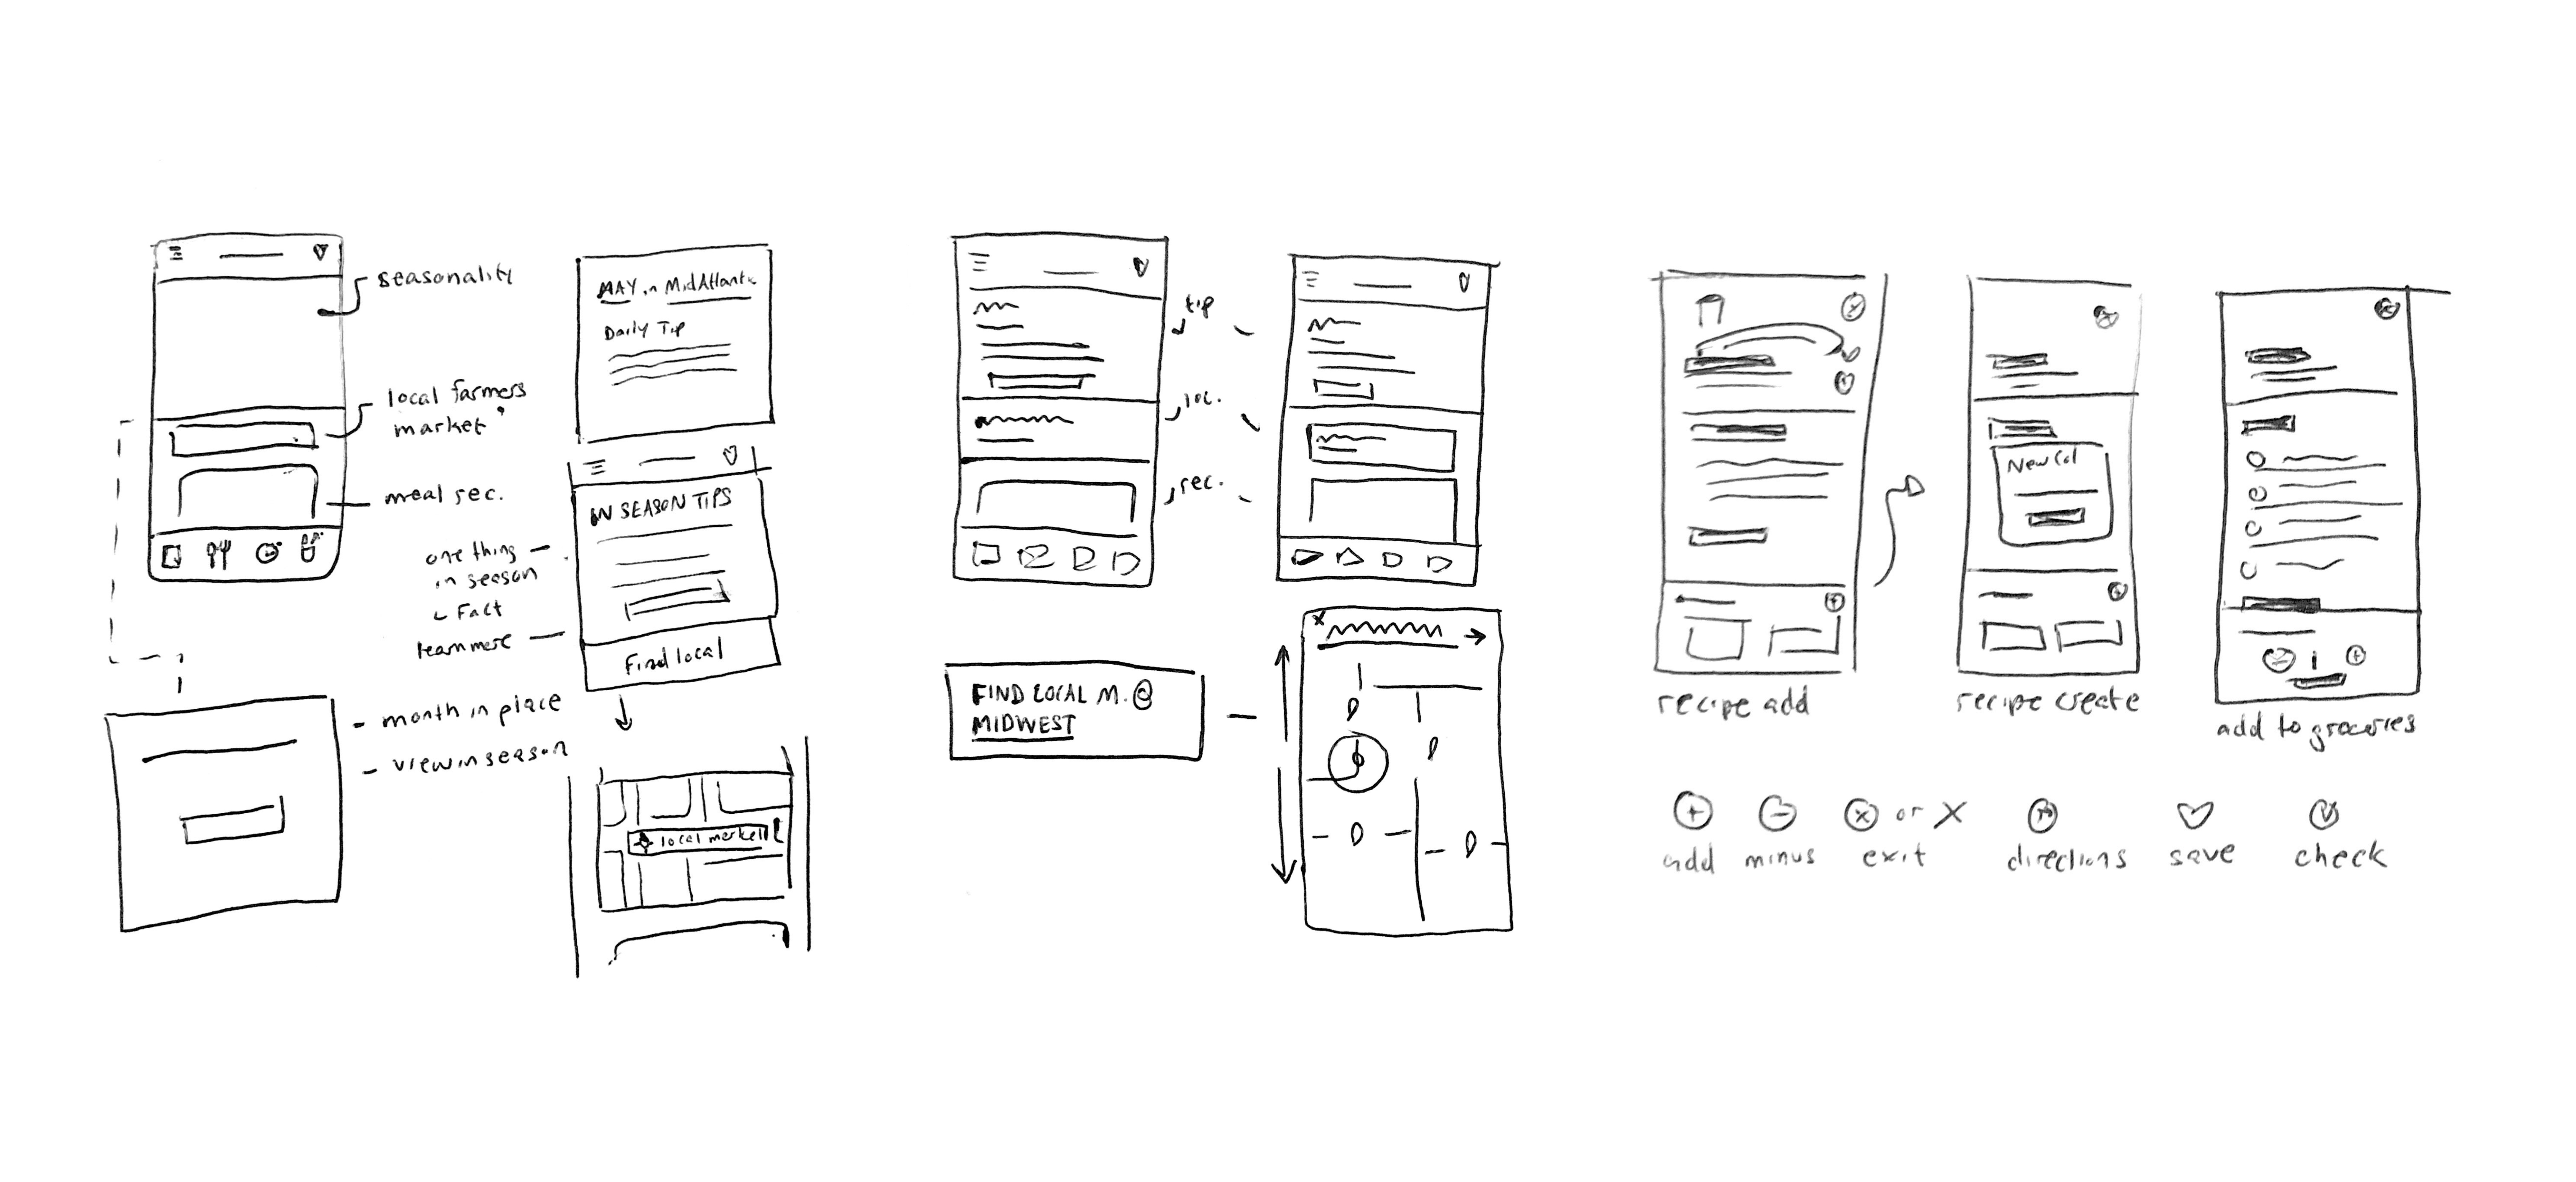 seasonality
local farmers
market
meal rec.
MAY in MidAtlantic
Daily Tip
IN SEASON TIPS
one thing
in season
Fact
learn more
Find local
month in place
view in season
local market
tip
loc.
rec.
FIND LOCAL M. @
MIDWEST
New Col
recipe add
recipe create
add to groceries
or X
add minus exit directions save check